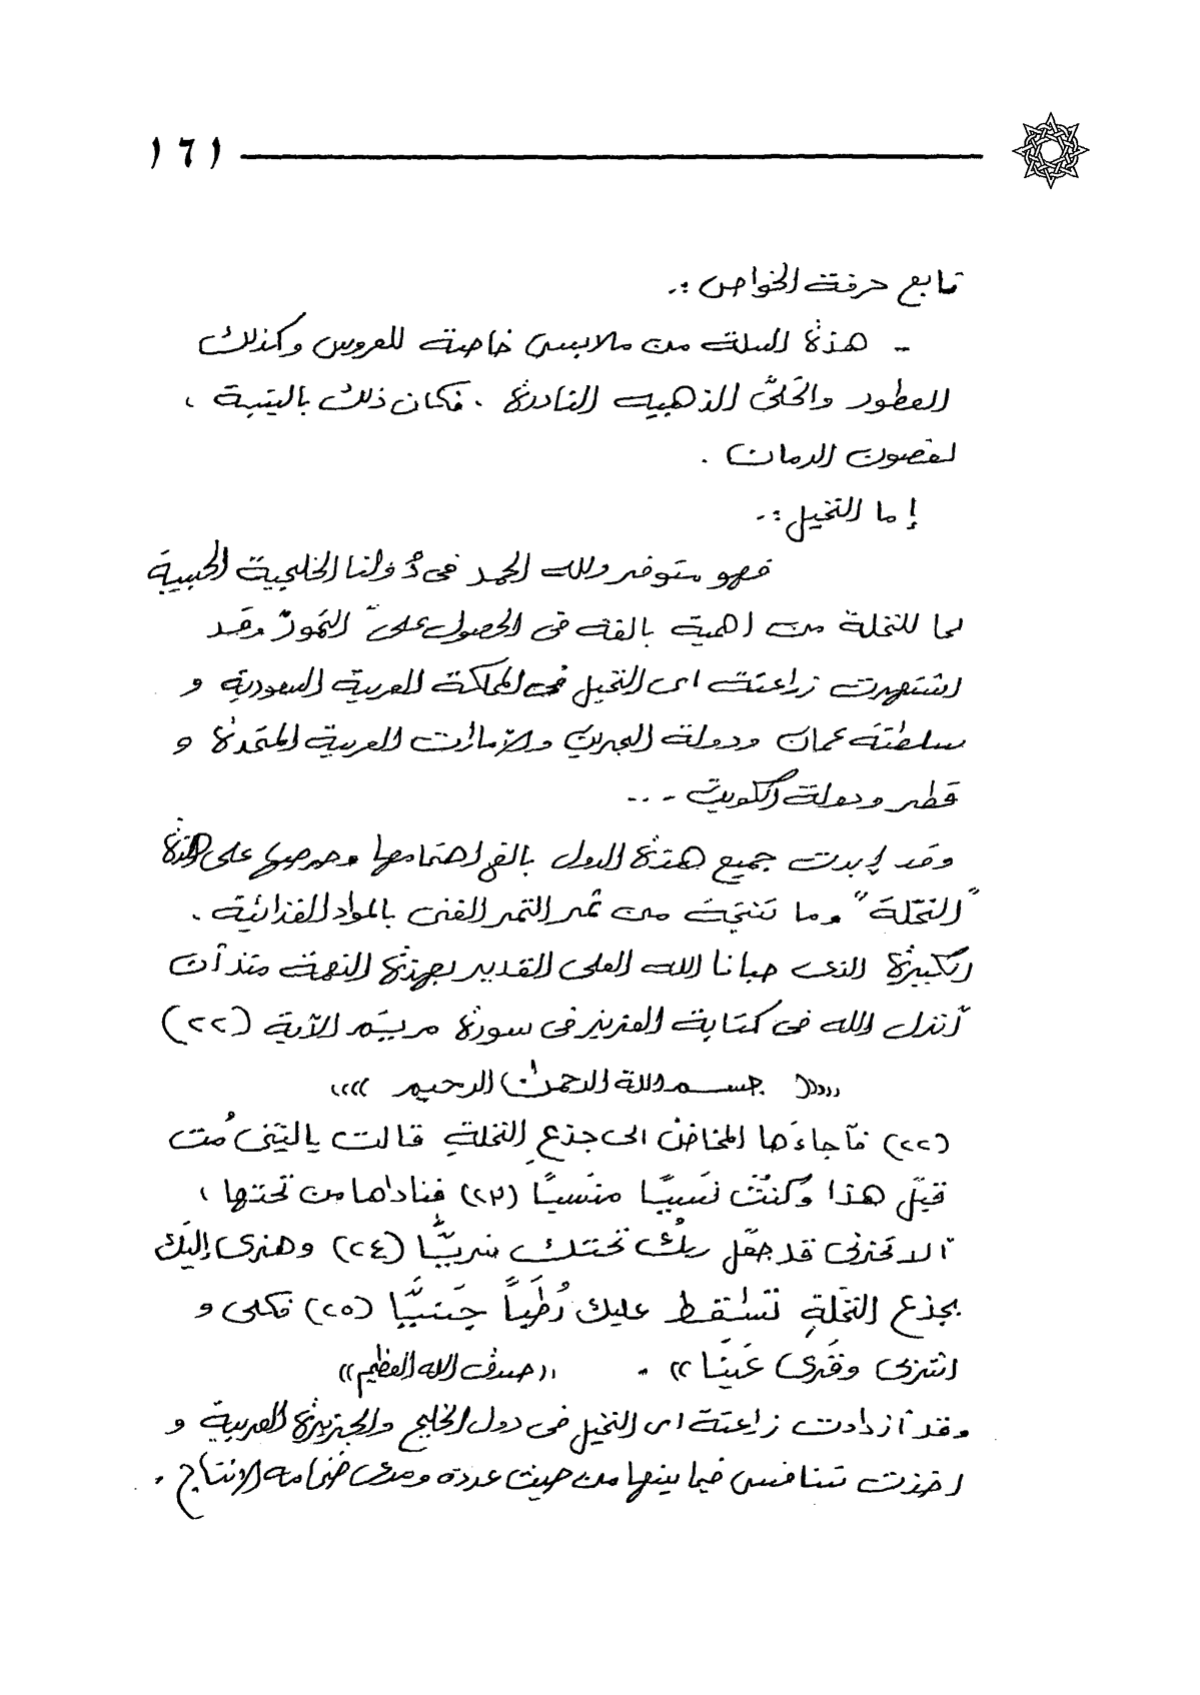 ١٦١
تابع حرفة الخواص :-
- هذه السلة من ملابس خاصة للعروس وكذلك
العطور والحَليَّ الذهبيه النادرة . فكان ذلك بالنسبة ،
لغصون الرمان .
إما النخيل :-
فهو متوفر ولله الحمد فى دُولنا الخليجية الحبيبة
لما للنخلة من اهمية بالغة فى الحصول علىَ التمور وقد
اشتهرت زراعتة اى النخيل فى المملكة العربية السعودية و
سلطنة عمان ودولة البحرين والإمارات العربية المتحدة و
قطر ودولة الكويت ...
وقد إبدت جميع هذة الدول بالغ اهتمامها وحرصها على هذة
"النخلة" وما تنتجة من ثمر التمر الغنى بالمواد الغذائية .
الكبيرة الذى حبانا الله العلى القدير بهذة النعمة منذ أن
أنزل الله فى كتابة العزيز فى سورة مريم الآية (٢٢)
(((( بسم الله الرحمن الرحيم ))))
(٢٢) فأجاءَها المخاض الى جذعِ النخلةِ قالت ياليتنى مُت
قبَل هذا وَكُنتُ نَسيًا منسيًا (٢٣) فناداها من تحتها ،
ألا تحزنى قد جعَل ربكُ تحتك سَريًّا (٢٤) وهزى إليَك
بجذع النخلَةِ تسَاقط عليك رُطَباً جَنيَّا (٢٥) فكلى و
اشربى وقَرى عَينَا )) . ((صدق الله العظيم))
وقد أزدادت زراعتة اى النخيل فى دول الخليج والجزيرة العربية و
اخذت تتنافس فيما بينها من حيث عدده ومدى ضخامه الإنتاج .